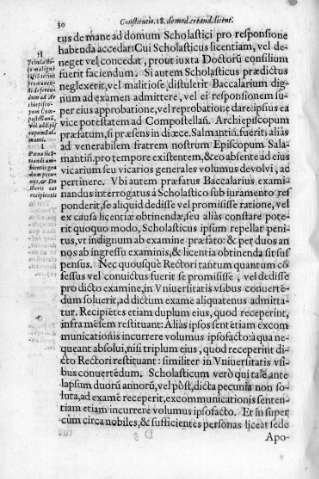 30 Constitucio. 18. de mod. creand. licent.
tus de mane ad domum Scholastici pro responsione
habenda accedat: Cui Scholasticus licentiam, vel de-
neget vel concedat, prout iuxta Doctorũ consilium
fuerit faciendum. Si autem Scholasticus prædictus
neglexerit, vel malitiose distulerit Baccalarium dig-
num ad examen admittere, vel ei responsionem su-
per eius approbatione, vel reprobatione dare: ipsius ea
vice potestatem ad Compostellañ. Archiepiscopum
præfatum, si præsens in diœce. Salmantiñ. fuerit: aliàs
ad venerabilem fratrem nostrum Episcopum Salm-
mantiñ. pro tempore existentem, & eo absente ad eius
vicarium seu vicarios generales volumus devolvi, ac
pertinere. Vbi autem præfatus Baccalarius exami-
nandus interrogatus à Scholastico sub iuramento res-
ponderit, se aliquid dedisse vel promisisse ratione, vel
ex causa licentiæ obtinendæ, seu aliàs constare pote-
rit quoquo modo, Scholasticus ipsum repellat peni-
tus, vt indignum ab examine præfato: & per duos an
nos ab ingressu examinis, & licentia obtinenda sit sus
pensus. Nec quousque Rectori tantum quantum cõ
sessus vel conuictus fuerit se promisisse, vel dedisse
pro dicto examine, in Vniuersitatis vsibus conuertẽ-
dum soluerit, ad dictum examen aliquatenus admitta-
tur. Recipiẽtes etiam duplum eius, quod receperint,
infra mẽsem restituant: Aliàs ipsos sent etiam excom
municationis incurrere volumus ipsofacto: à qua ne-
queant absolui, nisi triplum eius, quod receperint di-
cto Rectori restituant: similiter in Vniuersitatis vsi-
bus conuertẽdum. Scholasticum verò qui talẽ ante
lapsum duorũ annorũ, vel põst, dicta pecunia non so-
luta, ad examẽ receperit, excommunicationis senten-
tiam etiam incurrere volumus ipsofacto. Et in super
cùm circa nobiles, & sufficientes personas liceat sede
Apo-